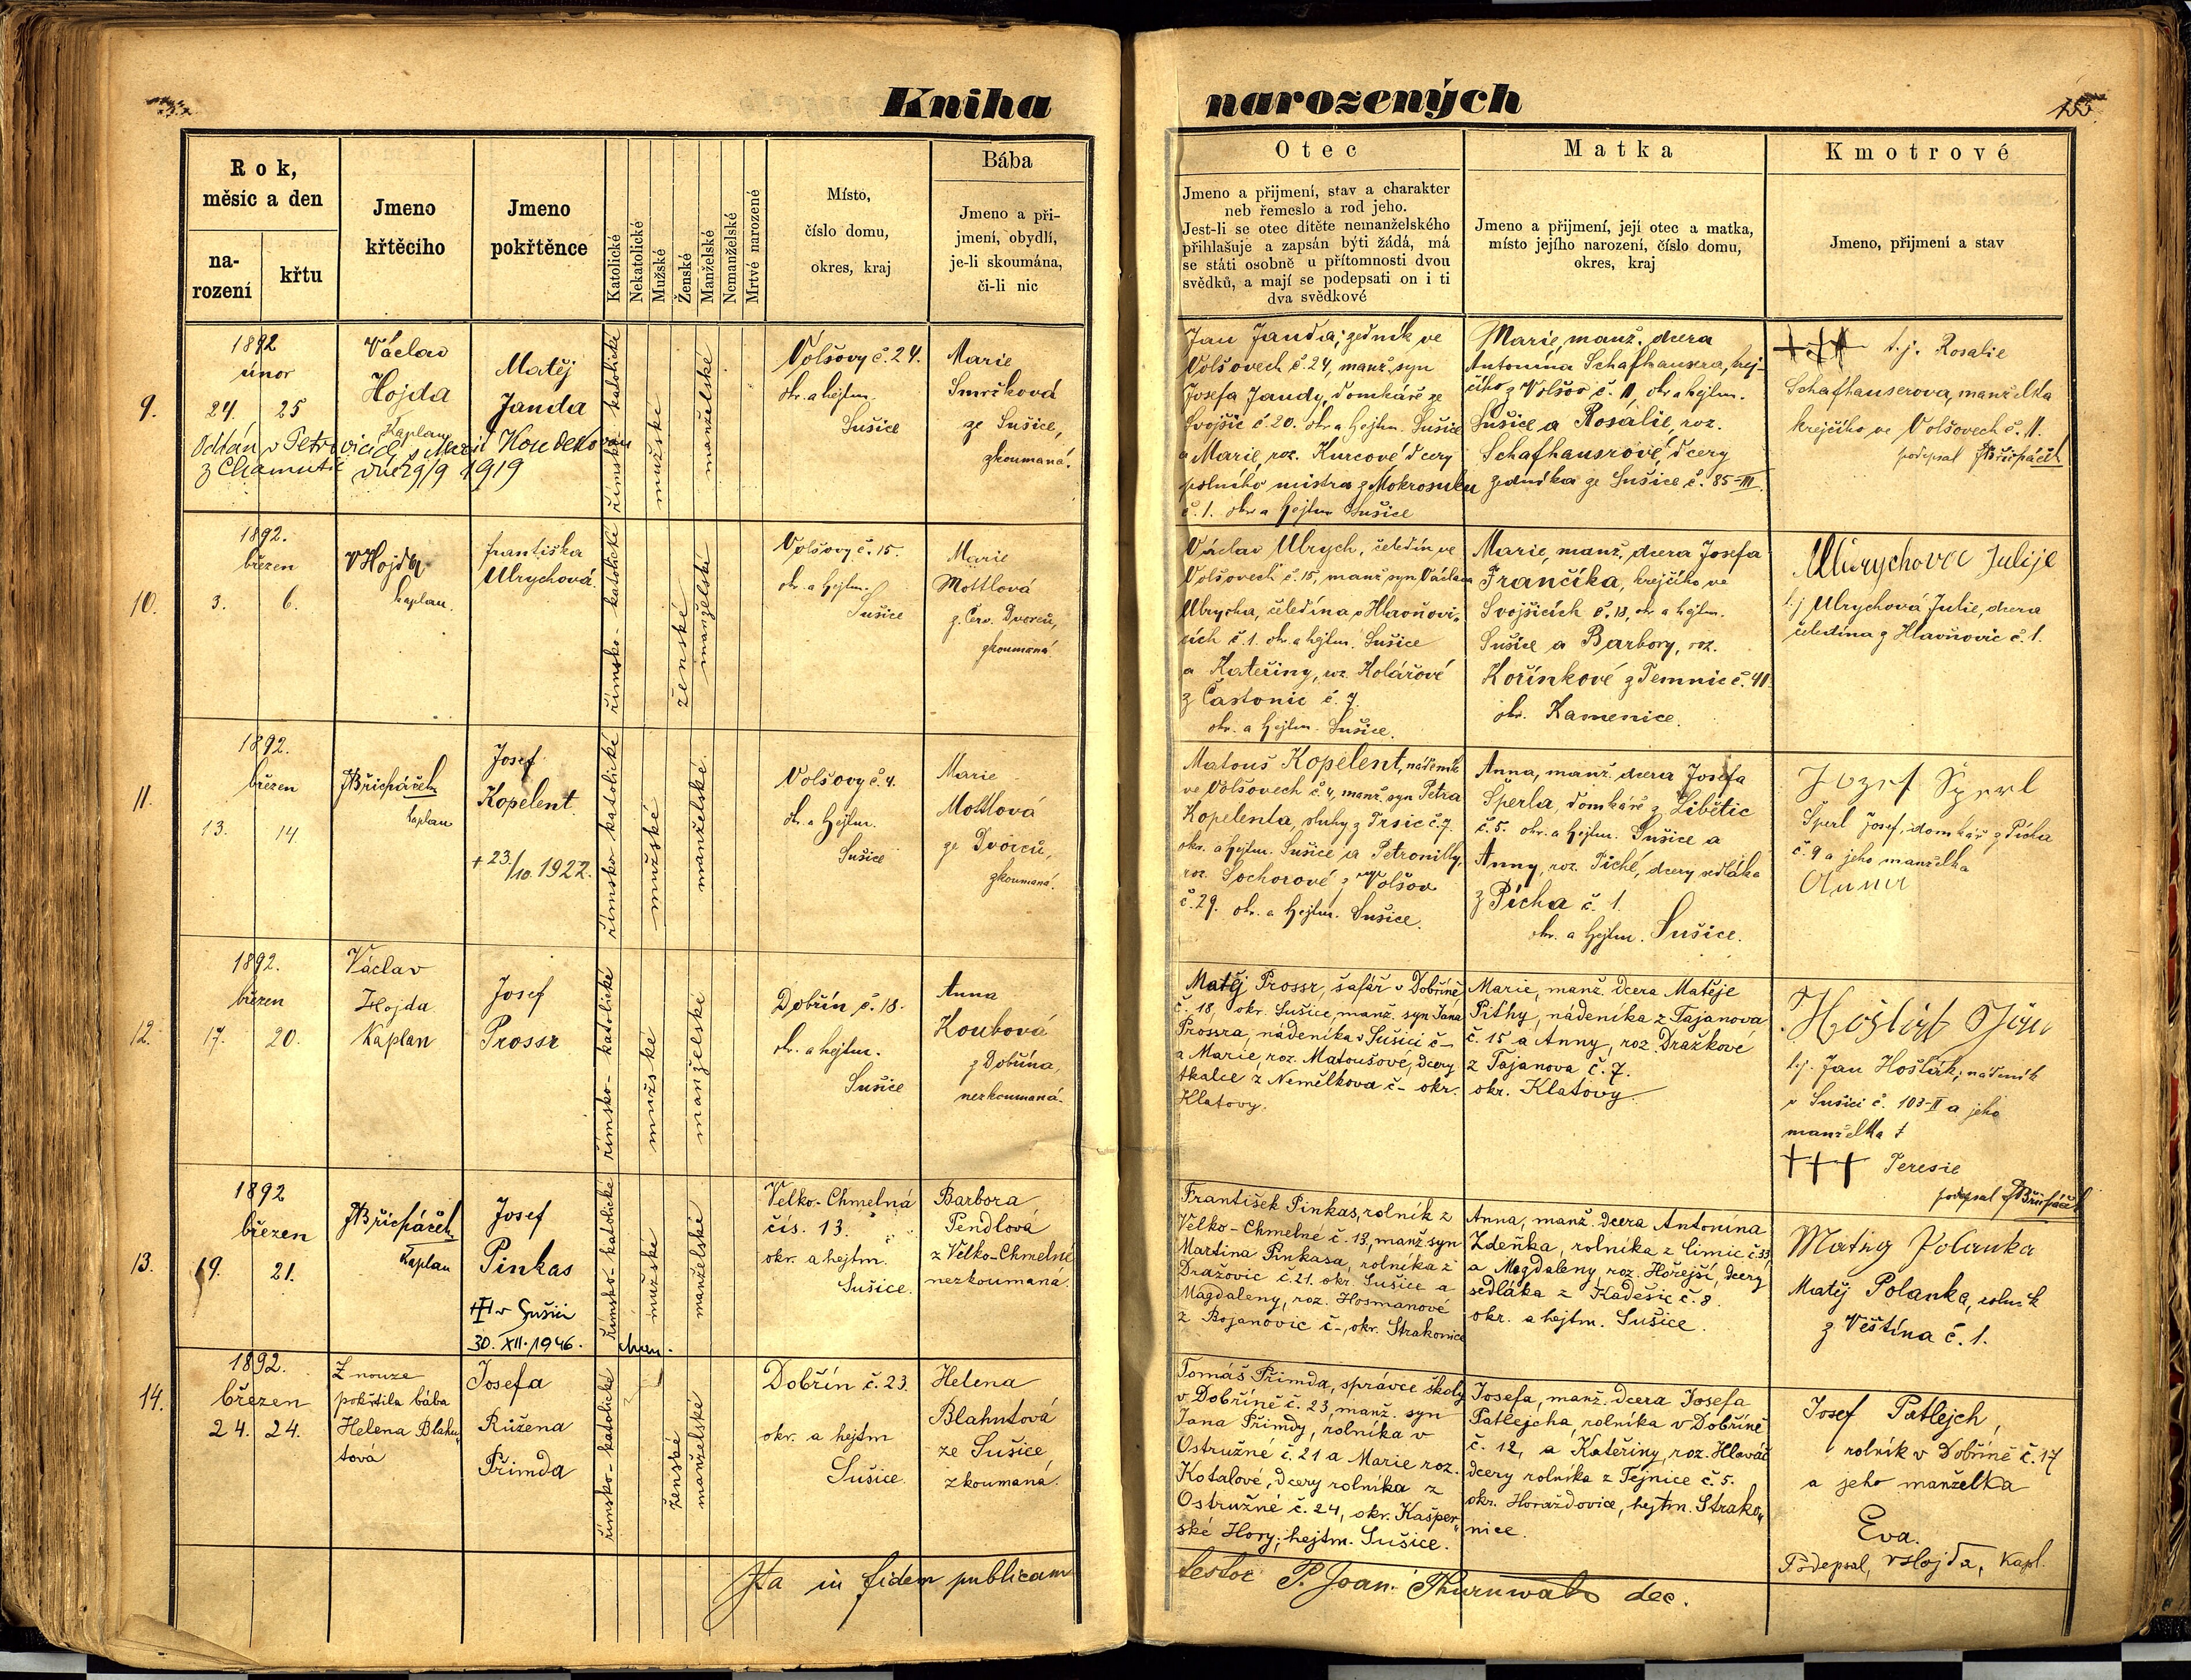 Kniha narozených
155
Rok,
měsíc a den
na-
rození
křtu
Jmeno
křtěcího
Jmeno
pokřtěnce
Katolické
Nekatolické
Mužské
Ženské
Manželské
Nemanželské
Mrtvé narozené
Místo,
číslo domu,
okres, kraj
Bába
Jmeno a při-
jmení, obydlí,
je-li skoumána,
či-li nic
Otec
Jmeno a přijmení, stav a charakter
neb řemeslo a rod jeho.
Jest-li se otec dítěte nemanželského
přihlašuje a zapsán býti žádá, má
se státi osobně u přítomnosti dvou
svědků, a mají se podepsati on i ti
dva svědkové
Matka
Jmeno a přijmení, její otec a matka,
místo jejího narození, číslo domu,
okres, kraj
Kmotrové
Jmeno, přijmení a stav
9.
1892
únor
24. 25
Václav
Hojda
Kaplan
Matěj
Janda
Oddán v Petrovicích s Marií Koudelkovou
z Chamutic dne 29/9 1919
římsko-katolické
mužské
manželské
Volšovy č. 24.
okr. a hejtm.
Sušice
Marie
Smrčková
ze Sušice,
zkoumaná.
Jan Janda, zedník ve
Volšovech č. 24, manž. syn
Josefa Jandy, domkáře ze
Svojšic č. 20. okr. a hejtm. Sušice
a Marie, roz. Kurcové dcery
polního mistra z Mokrosuku
č. 1. okr. a hejtm. Sušice
Marie, manž. dcera
Antonína Schafhausera, krej-
čího z Volšov č. 11, okr. a hejtm.
Sušice a Rosálie, roz.
Schafhausrové, dcery
zedníka ze Sušice č. 85-III.
+++ t. j. Rosalie
Schafhauserova, manželka
krejčího ve Volšovech č. 11.
podepsal JBřicháček
10.
1892.
březen
3. 6.
VHojda
kaplan.
Františka
Ulrychová.
římsko-katolické
ženské
manželské
Volšovy č. 15.
okr. a hejtm.
Sušice
Marie
Mottlová
z Červ. Dvorců,
zkoumaná
Václav Ulrych, čeledín ve
Volšovech č. 15, manž. syn Václava
Ulrycha, čeledína v Hlavňovi-
cích č. 1. okr. a hejtm. Sušice
a Kateřiny, roz. Kolářové
z Častonic č. 7.
okr. a hejtm. Sušice.
Marie, manž. dcera Josefa
Frančíka, krejčího ve
Svojšicích č. 13, okr. a hejtm.
Sušice a Barbory, roz.
Kořínkové z Temnic č. 41.
okr. Kamenice.
Ulrychova Julije
t. j. Ulrychová Julie, dcera
čeledína z Hlavňovic č. 1.
11.
1892.
březen
13. 14.
JBřicháček
kaplan
Josef
Kopelent.
+ 23./10. 1922.
římsko-katolické
mužské
manželské.
Volšovy č. 4.
okr. a hejtm.
Sušice
Marie
Mottlová
ze Dvorců,
zkoumaná.
Matouš Kopelent, nádeník
ve Volšovech č. 4, manž. syn Petra
Kopelenta, sluhy z Trsic č. 7.
okr. a hejtm. Sušice a Petronilly,
roz. Sochorové z Volšov
č. 29. okr. a hejtm. Sušice.
Anna, manž. dcera Josefa
Šperla, domkáře z Libětic
č. 5. okr. a hejtm. Sušice a
Anny, roz. Píché, dcery sedláka
z Pícha č. 1.
okr. a hejtm. Sušice.
Jozef Šperl
Šperl Josef, domkář z Pícha
č. 9 a jeho manželka
Anna
12.
1892.
březen
17. 20.
Václav
Hojda
Kaplan
Josef
Prossr
římsko-katolické
mužské
manželské
Dobřín č. 18.
okr. a hejtm.
Sušice
Anna
Koubová
z Dobřína,
nezkoumaná.
Matěj Prossr, šafář v Dobříně
č. 18, okr. Sušice, manž. syn Jana
Prossra, nádeníka v Sušici č –
a Marie, roz. Matoušové, dcery
tkalce z Nemělkova č – okr.
Klatovy.
Marie, manž. dcera Matěje
Pithy, nádeníka z Tajanova
č. 15 a Anny, roz. Dražkové
z Tajanova č. 7.
okr. Klatovy.
t. j. Jan Hošťák, nádeník
v Sušici č. 103-II a jeho
manželka
+++ Teresie
podepsal JBřicháček
13.
1892
březen
19. 21.
JBřicháček
Kaplan
Josef
Pinkas
v Sušici
30. XII. 1946.
římsko-katolické
mužské
manželské
Velko-Chmelná
čís. 13.
okr. a hejtm.
Sušice.
Barbora
Pendlová
z Velko-Chmelné
nezkoumaná.
František Pinkas, rolník z
Velko-Chmelné č. 13, manž. syn
Martina Pinkasa, rolníka z
Dražovic č. 21. okr. Sušice a
Magdaleny, roz. Hosmanové
z Bojanovic č –, okr. Strakonice
Anna, manž. dcera Antonína
Zdeňka, rolníka z Čimic č. 33,
a Magdaleny roz. Hořejší, dcery
sedláka z Kadešic č. 8.
okr. a hejtm. Sušice.
Matěj Polanka
Matěj Polanka, rolník
z Věštína č. 1.
14.
1892.
březen
24. 24.
Z nouze
pokřtila bába
Helena Blahu-
tová
Josefa
Růžena
Přimda
římsko-katolické
ženské
manželské
Dobřín č. 23.
okr. a hejtm
Sušice.
Helena
Blahutová
ze Sušice
zkoumaná.
Tomáš Přimda, správce školy
v Dobříně č. 23, manž. syn
Jana Přimdy, rolníka v
Ostružné č. 21 a Marie roz.
Kotalové, dcery rolníka z
Ostružné č. 24, okr. Kašper-
ské Hory, hejtm. Sušice.
Josefa, manž. dcera Josefa
Patlejcha, rolníka v Dobříně
č. 12, a Kateřiny, roz. Hlaváč
dcery rolníka z Tejnice č. 5.
okr. Horažďovice, hejtm. Strako-
nice.
Josef Patlejch,
rolník v Dobříně č. 17
a jeho manželka
Eva.
Podepsal, VHojda, Kapl.
Ita in fidem publicam
testor P. Joan. Thurnwald dec.